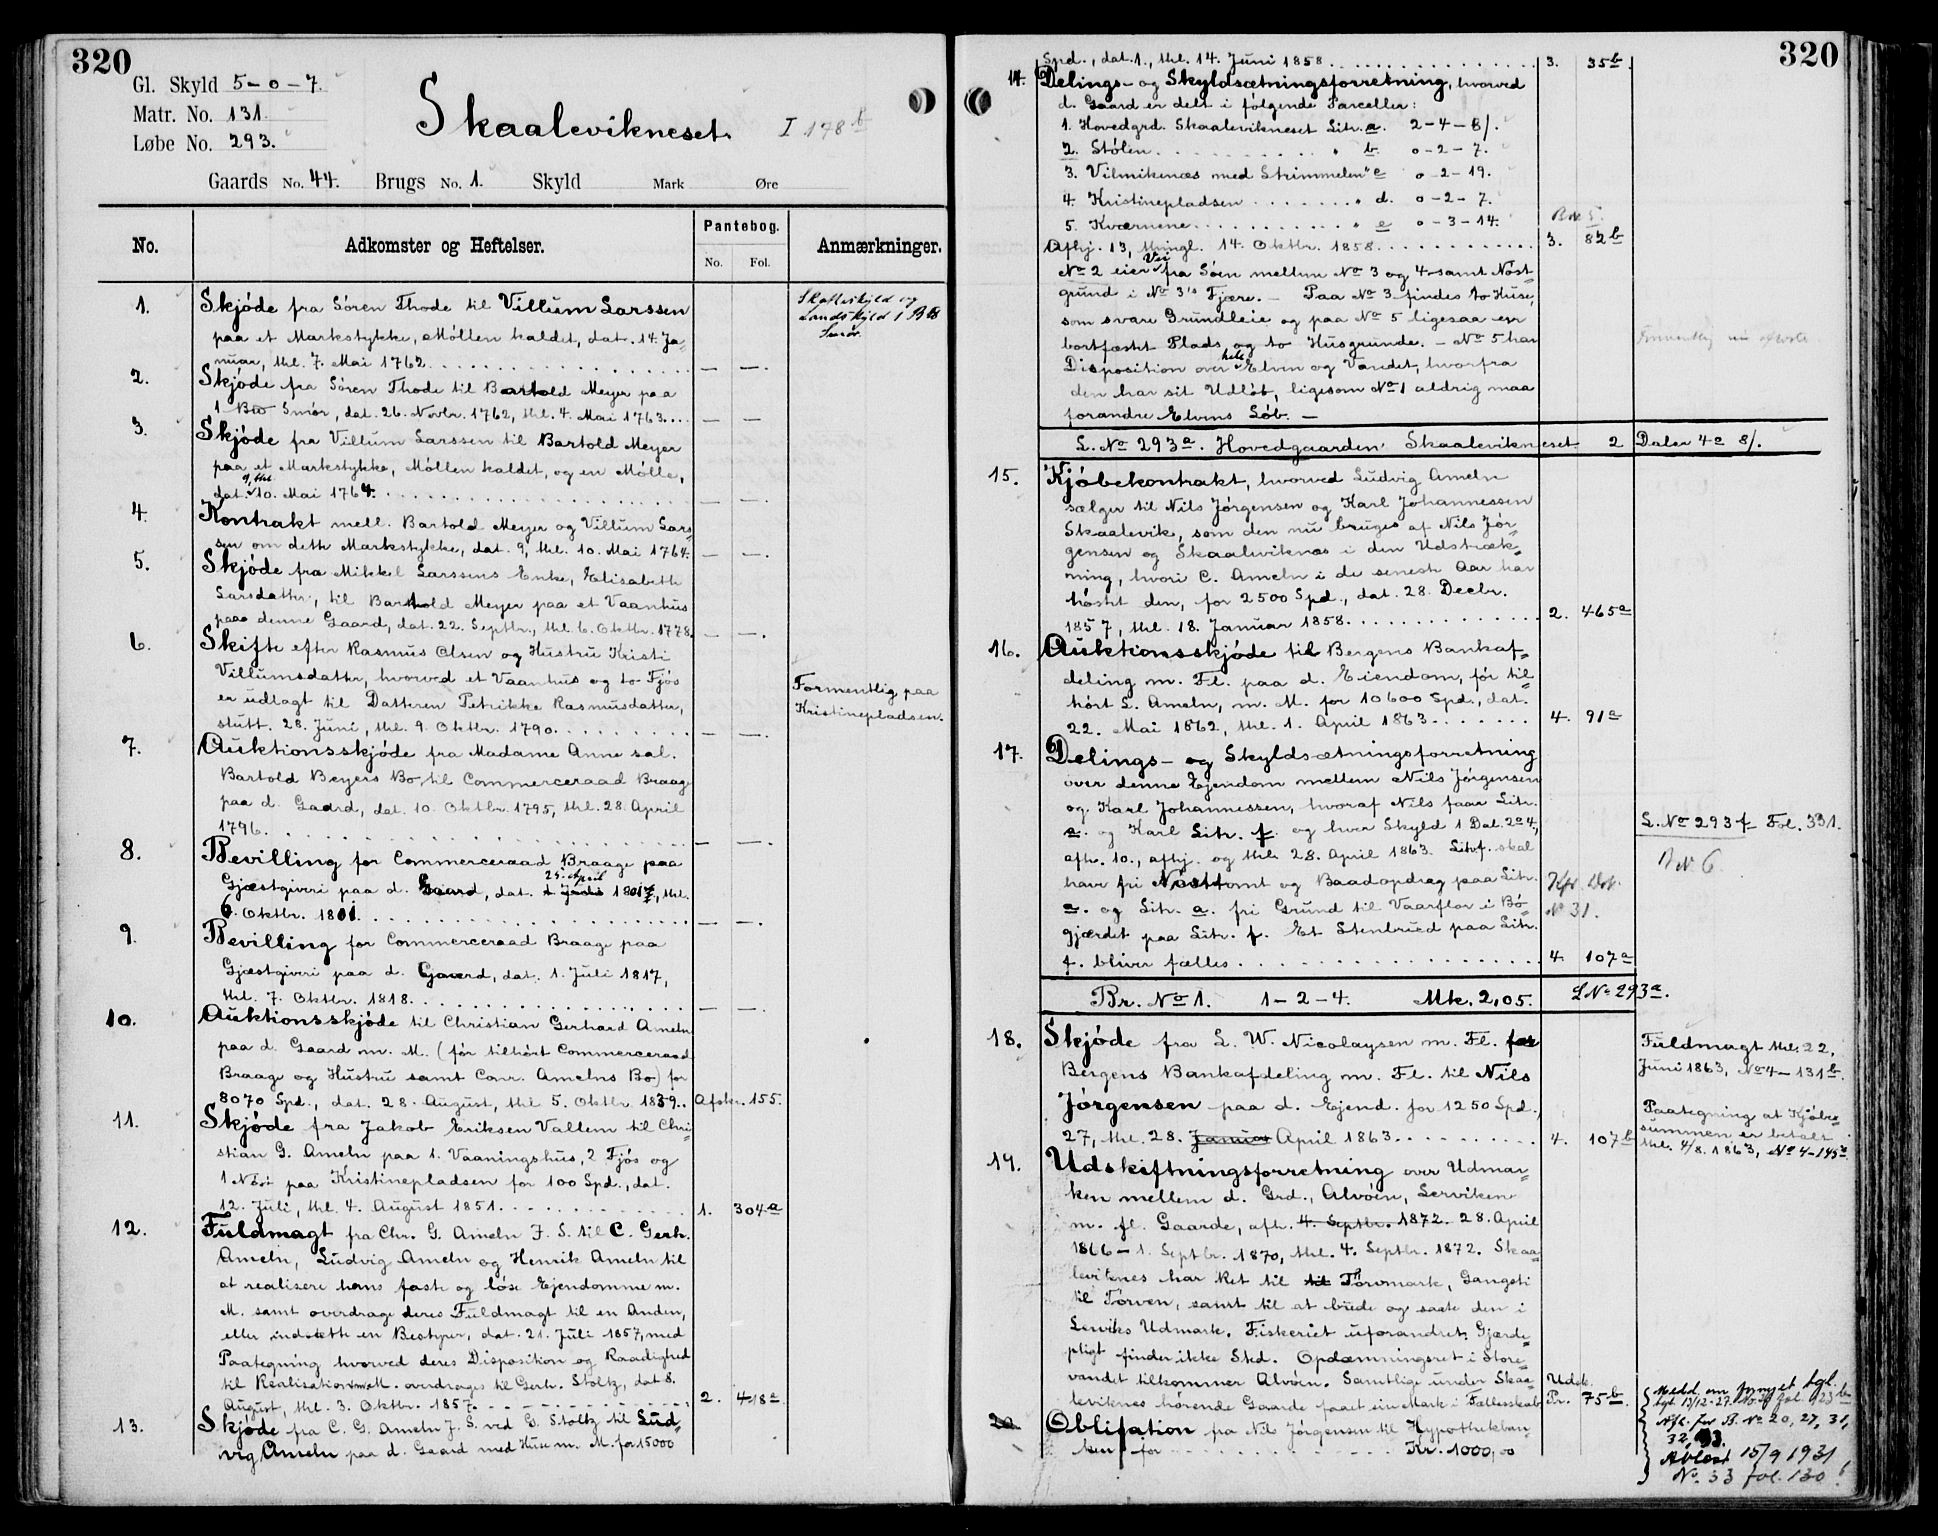 320
Gl. Skyld 5-0-7.
Matr. No. 131.
Løbe No. 293.
Skaalevikneset. I 178 b
Gaards No. 44. Brugs No. 1. Skyld Mark Øre
No.
Adkomster og Heftelser.
Pantebog.
No. Fol.
Anmærkninger.
1. Skjøde fra Sören Thode til Villum Larssen
paa et Markstykke, Møllen kaldet, dat. 14. Ja=
nuar, thl. 7. Mai 1762. — —.
Skatteskyld og
Landskyld 1
Smör.
2. Skjøde fra Sören Thode til Bartold Meyer paa
1 Smör, dat. 26. Novbr. 1762, thl. 4. Mai 1763. — —
3. Skjøde fra Villum Larssen til Bartold Meyer
paa et Markstykke, Møllen kaldet, og en Mølle,
dat. 9, thl. 10. Mai 1764. — —.
4. Kontrakt mell. Bartold Meyer og Villum Lars=
sen om dette Markstykke, dat. 9, thl. 10. Mai 1764. — —.
5. Skjøde fra Mikkel Larssens Enke, Elisabeth
Larsdatter, til Barthold Meyer paa et Vaanhus
paa denne Gaard, dat. 22. Septbr., thl. 6. Oktbr. 1778. — —.
6. Skifte efter Rasmus Olsen og Hustru Kristi
Villumsdatter, hvorved et Vaanhus og to Fjøs
er udlagt til Datteren Petrikke Rasmusdatter,
slutt. 28. Juni, thl. 9. Oktbr. 1790. — —.
Formentlig paa
Kristinepladsen.
7. Auktionsskjøde fra Madame Anne sal.
Bartold Beyers Bo, til Commerceraad Braage
paa d. Gaard, dat. 10. Oktbr. 1795, thl. 28. April
1796. — —.
8. Bevilling for Commerceraad Braage paa
Gjæstgiveri paa d. Gaard, dat. 25. April 1801, thl.
6. Oktbr. 1801. — —.
9. Bevilling for Commerceraad Braage paa
Gjæstgiveri paa d. Gaard, dat. 1. Juli 1817,
thl. 7. Oktbr. 1818. — —.
10. Auktionsskjøde til Christian Gerhard Ameln
paa d. Gaard m. M. (før tilhørt Commerceraad
Braage og Hustru samt Conr. Amelns Bo) for
8070 Spd., dat. 28. August, thl. 5. Oktbr. 1839. Afskr. 155.
11. Skjøde fra Jakob Eriksen Vallem til Chri=
stian G. Ameln paa 1. Vaaningshus, 2 Fjøs og
1 Nøst paa Kristinepladsen for 100 Spd., dat.
12. Juli, thl. 4. August 1851. 1. 304a
12. Fuldmagt fra Chr. G. Ameln J. S. til C. Gerh.
Ameln, Ludvig Ameln og Henrik Ameln til
at realisere hans faste og løse Ejendomme m.
M. samt overdrage deres Fuldmagt til en Anden,
eller indsætte en Bestyrer, dat. 21. Juli 1857, med
Paategning hvorved deres Disposition og Raadighed
til Realisation m.M. overdrages til Gerh. Stoltz, dat 8.
August, thl. 3. Oktbr. 1857. 2. 418a
13. Skjøde fra C. G. Ameln J. S. ved G. Stoltz til Lud=
vig Ameln paa d. Gaard med Huse m. M. for 15000
320
Spd., dat. 1., thl. 14. Juni 1858. 3. 35b.
14. Delings- og Skyldsætningsforretning, hvorved
d. Gaard er delt i følgende Parceller:
1. Hovedgrd. Skaalevikneset Litr. a. 2-4-8/.
2. Stölen " b 0-2-7.
3. Vilmiknæs med Skimmelen " c 0-2-19.
4. Kristinepladsen " d. 0-2-7.
5. Kværnene " e 0-3-14.
Afhj. 13, thingl. 14. Oktbr. 1858. 3. 82b
No 2 eier Vei fra Søen mellem No 3 og 4 samt Nøst
grund i No 3's Fjære. — Paa No 3 findes to Huse,
som svare Grundleie og paa No 5 ligesaa en
bortfæstet Plads og to Husgrunde. — No 5 har
Disposition over hele Elven og Vandet, hvorfra
den har sit Udløb, ligesom No 1 aldrig maa
forandre Elvens Løb. —
L. No 293a. Hovedgaarden Skaalevikneset 2 Daler 4a 8/.
15. Kjøbekontrakt, hvorved Ludvig Ameln
sælger til Nils Jørgensen og Karl Johannessen
Skaalevik, som den nu bruges af Nils Jør=
gensen og Skaaleviknæs i den Udstræk=
ning, hvori C. Ameln i de seneste Aar har
høstet den, for 2500 Spd., dat. 28. Decbr.
1857, thl. 18. Januar 1858. 2. 465a
16. Auktionsskjøde til Bergens Bankaf=
deling m. Fl. paa d. Eiendom, før til=
hørt L. Ameln, m. M. for 10600 Spd., dat.
22. Mai 1862, thl. 1. April 1863. 4. 91a
17. Delings- og Skyldsætningsforretning
over denne Ejendom mellem Nils Jørgensen
og Karl Johannessen, hvoraf Nils faar Litr.
a. og Karl Litr. f. og hver Skyld 1 Dal. 2a 4,
afh. 10., afhj. og thl. 28. April 1863. Litr. f. skal
have fri Nösttomt og Baadopdrag paa Litr.
a. og Litr. a. fri Grund til Vaarflor i Bö=
gjærdet paa Litr. f. Et Stenbrud paa Litr.
f. bliver fælles. 4. 107a
L. No 293 f Fol. 331.
B No 6
Kfr. Dok.
No 31.
Br. No 1. 1-2-4. Mk. 2,05. L No 293a.
18. Skjøde fra L. W. Nicolaysen m. Fl. for
Bergens Bankafdeling m. Fl. til Nils
Jørgensen paa d. Ejend. for 1250 Spd.,
27, thl. 28. Januar April 1863. 4. 107b
Fuldmagt thl. 22,
Juni 1863, No 4-131b.
Paategning at Kjøbe=
summen er betalt
thl. 4/8. 1863, No 4-145a.
19. Udskiftningsforretning over Udmar=
ken mellem d. Grd., Alvöen, Lerviken
m. fl. Gaarde, afh. 4. Septbr. 1872. 28. April
1866 - 1. Septbr. 1870, thl. 4. Septbr. 1872. Skaa=
leviknes har Ret til til Torvmark, Gangsti
til Torven, samt til at brede og saate den i
Lerviks Udmark. Fiskeriet uforandret. Gjærde=
pligt finder ikke Sted. Opdæmningsret i Store=
vandet tilkommer Alvöen. Samtlige under Skaa=
leviknes hørende Gaarde faaet sin Mark i Fællesskab. Udsk. Pr. 75b.
20. Obligation fra Nils Jørgensen til Hypothekban=
ken for Kr. 1000,00
Medd. om fornyet tgl.
Afl. for B. No 20, 27, 31,
32, 33.
Avlöst 15/9 1931
No. 33 fol. 130